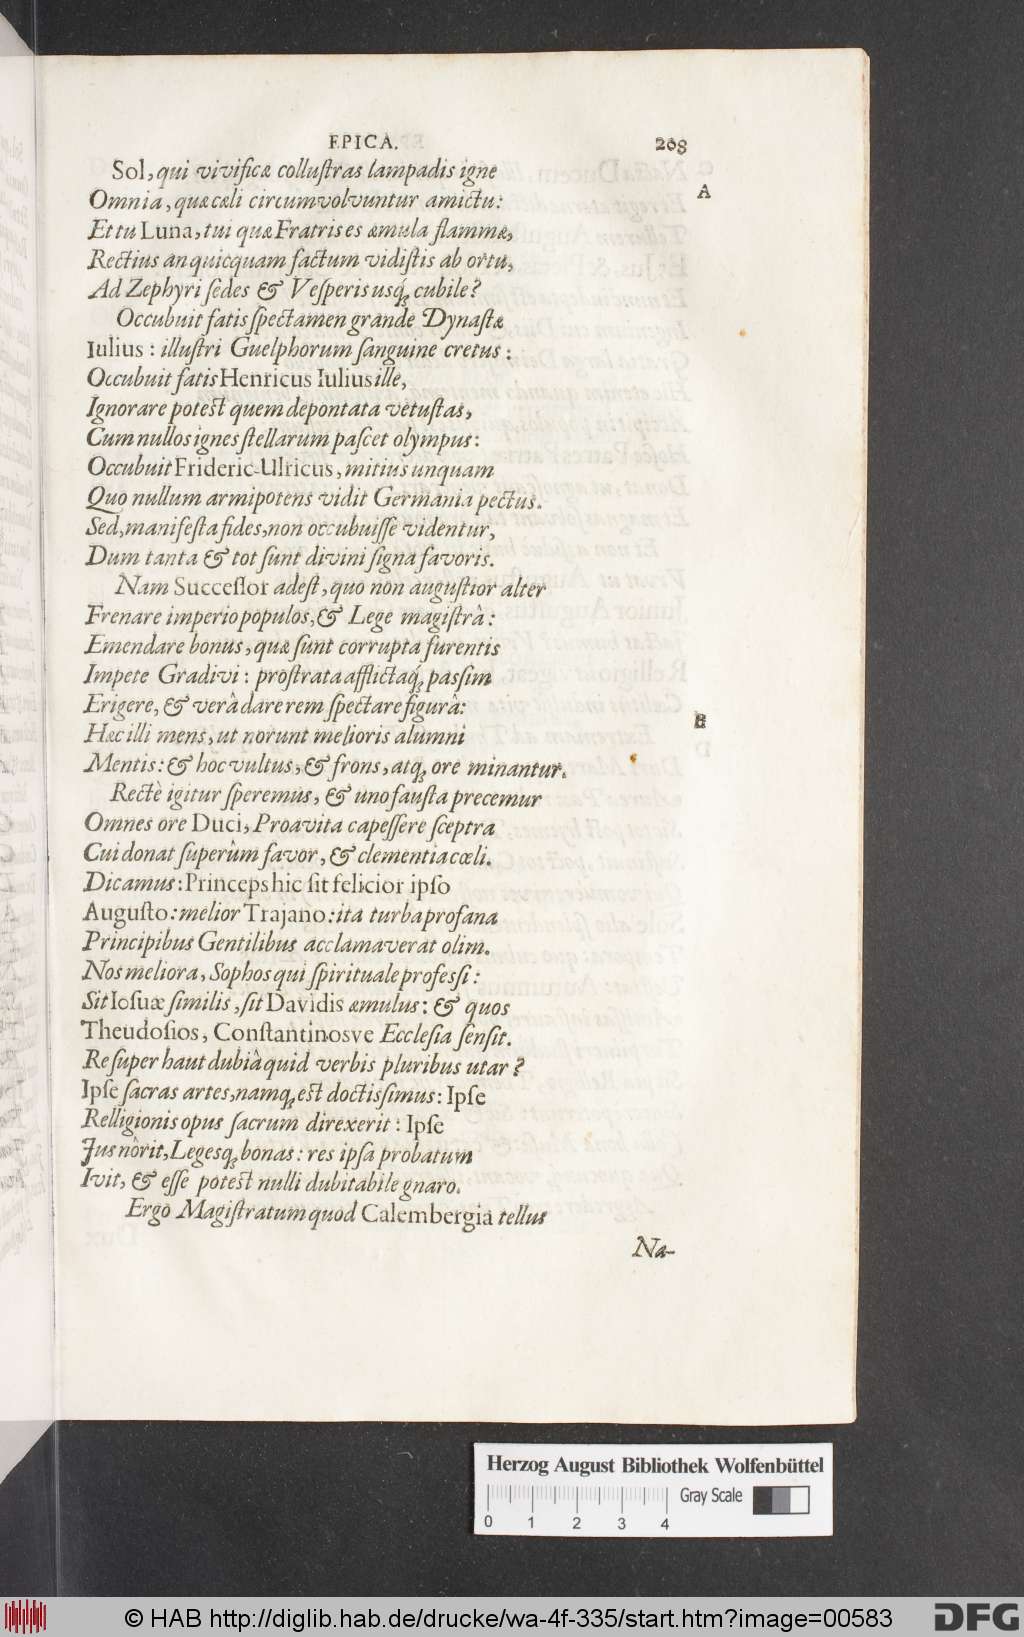 EPICA. 208
Sol, qui vivificæ colluſtras lampadis igne
A
Omnia, quæ cæli circumvolvuntur amictu:
Et tu Luna, tui quæ Fratris es æmula flammæ,
Rectius an quicquam factum vidiſtis ab ortu,
Ad Zephyri ſedes & Veſperis usq; cubile?
Occubuit fatis ſpectamen grande Dynaſtæ
Iulius: illuſtri Guelphorum ſanguine cretus:
Occubuit fatis Henricus Iulius ille,
Ignorare poteſt quem depontata vetuſtas,
Cum nullos ignes ſtellarum paſcet olympus:
Occubuit Frideric-Ulricus, mitius unquam
Quo nullum armipotens vidit Germania pectus.
Sed, manifeſta fides, non occubuiſſe videntur,
Dum tanta & tot ſunt divini ſigna favoris.
Nam Succeſſor adeſt, quo non auguſtior alter
Frenare imperio populos, & Lege magiſtrâ:
Emendare bonus, quæ ſunt corrupta furentis
Impete Gradivi: proſtrata afflictaq; paſſim
Erigere, & verâ dare rem ſpectare figurâ:
B
Hæc illi mens, ut norunt melioris alumni
Mentis: & hoc vultus, & frons, atq; ore minantur.
Rectè igitur ſperemus, & uno fauſta precemur
Omnes ore Duci, Proavita capeſſere ſceptra
Cui donat ſuperûm favor, & clementia cœli.
Dicamus: Princeps hic ſit felicior ipſo
Auguſto: melior Trajano: ita turba profana
Principibus Gentilibus acclamaverat olim.
Nos meliora, Sophos qui ſpirituale profeſſi:
Sit Ioſuæ ſimilis, ſit Davidis æmulus: & quos
Theudoſios, Conſtantinosve Eccleſia ſenſit.
Re ſuper haut dubiâ quid verbis pluribus utar?
Ipſe ſacras artes, namq; eſt doctiſsimus: Ipſe
Relligionis opus ſacrum direxerit: Ipſe
Jus nôrit, Legesq; bonas: res ipſa probatum
Ivit, & eſſe poteſt nulli dubitabile gnaro.
Ergò Magiſtratum quod Calembergia tellus
Na-
Herzog August Bibliothek Wolfenbüttel
Gray Scale
0 1 2 3 4
© HAB http://diglib.hab.de/drucke/wa-4f-335/start.htm?image=00583
DFG